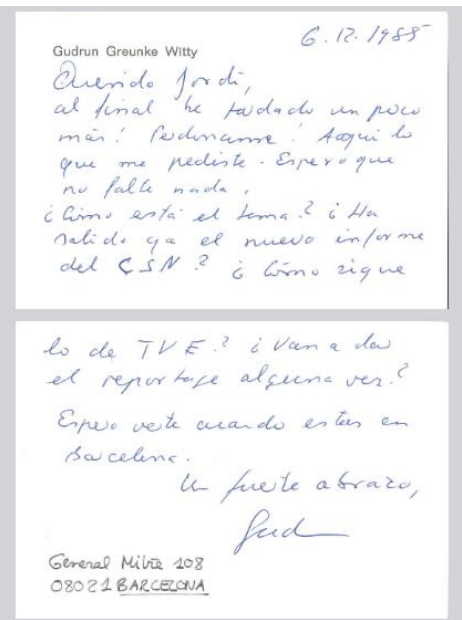 Gudrun Greunke Witty
6.12.1988
Querido Jordi,
al final he tardado un poco
más! Perdoname! Aqui lo
que me pediste. Espero que
no falte nada.
¿Cómo está el tema? ¿Ha
salido ya el nuevo informe
del CSN? ¿Cómo sigue
lo de TVE? ¿Van a dar
el reportaje alguna vez?
Espero verte cuando estés en
Barcelona.
Un fuerte abrazo,
Gud
General Mitre 108
08021 BARCELONA